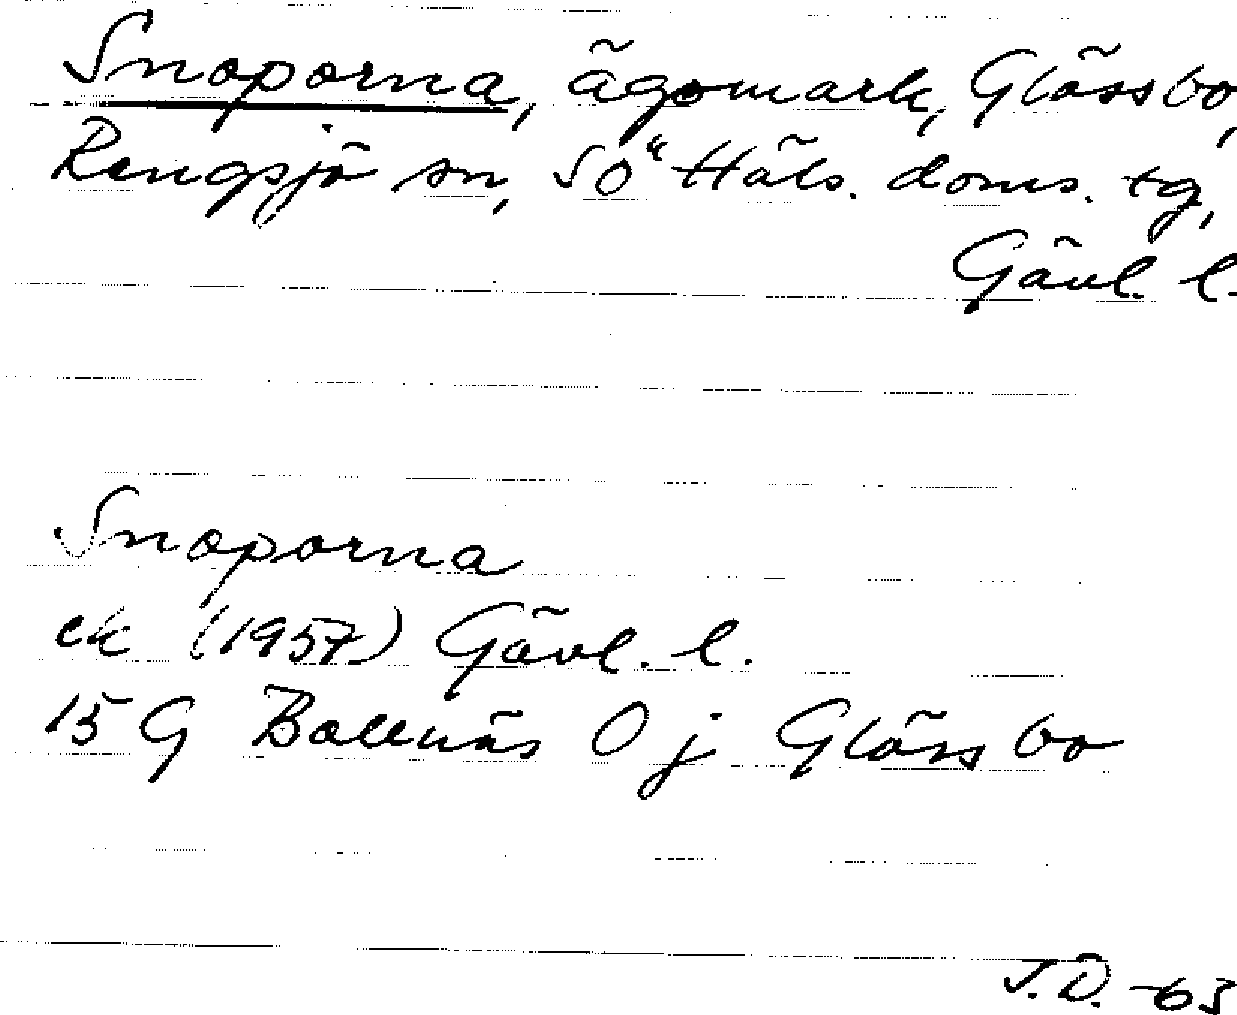 Snoporna, ägomark, Glössbo,
Rengsjö sn, SÖ Häls. doms. tg,
Gävl. l.
Snoporna
ek (1957) Gävl. l.
15 G Bollnäs 0 j Glössbo
J.D. -63